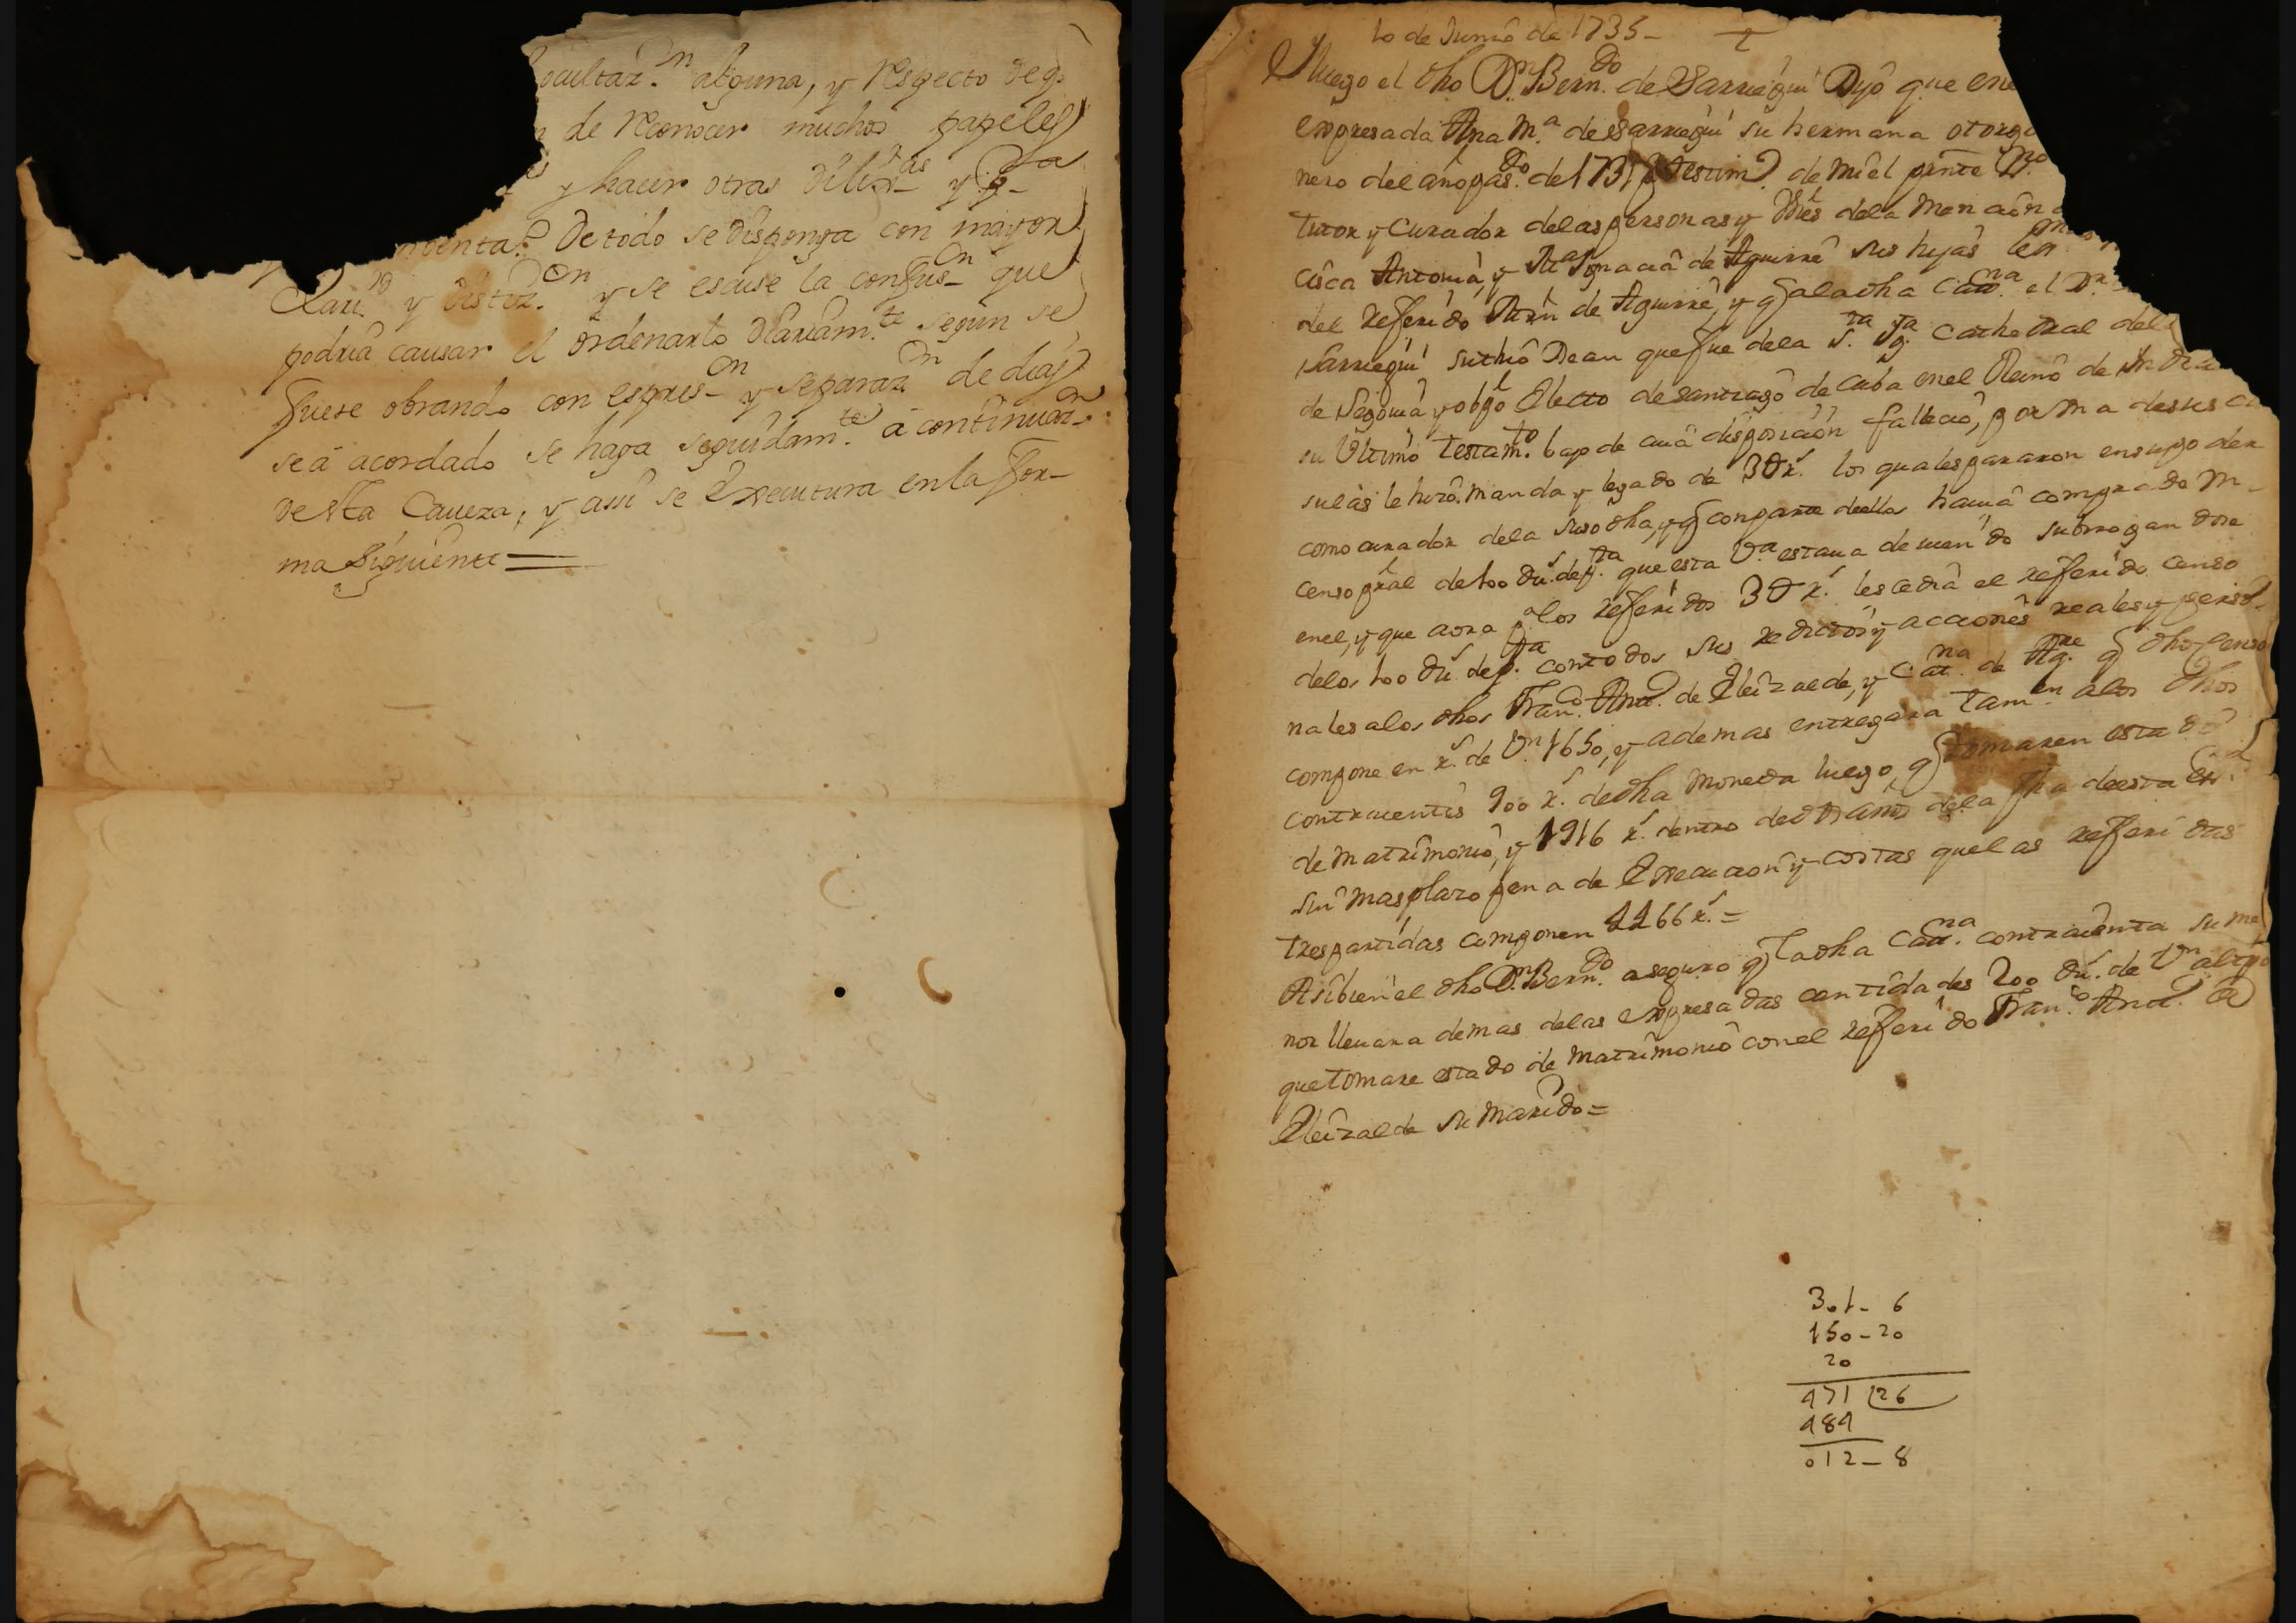 ocultaz.on alguna, y respecto deq.
de reconocer muchos papeles
y hacer otras dilix.as y p.a
De todo se disponga con mayor
Clari.d y distinz.on y se escuse la confus.on que
podria causar el ordenarlo diariam.te segun se
fuese obrando con espres.on y separaz.on de dias
se á acordado se haga seguidam.te á continuaz.on
desta Caveza, y asi se executara en la for-
ma siguiente =
10 de Junio de 1735-
Y luego el dho D.n Bern.do de Sarriegui Dijo que en
expresada Ana M.a de Sarriegui su hermana otorgo
nero del año pas.do de 1731 p testim.o de mi el pnte
tutor y curador delas personas y vies dela mencion
cisca Antonia, y M.a Ignacia de Aguirre sus hijas
del referido Mrn de Aguirre, y q ala dha Cath.na el D.r
Sarriegui su thio Dean que fue dela S.ta Yg.a Cathedral dela
de Segovia y obpo Electo de Santiago de Cuba en el Reino de Indias
su ultimo testam.to bajo de cuia disposicion fallecio, por una desus
sulas le hizo manda y legado de 3U r.s los quales pararon en su poder
como curador dela suso dha, y q con parte dellos havia comprado un
censo pral de 100 du.s de p.ta que esta V.a estava deviendo subrogandose
en el, y que aora p.a los referidos 3U r.s les cedia el referido censo
delos 100 du.s de p.ta con todos sus reditos y acciones reales y perso-
nales alos dhos Fran.co Ant.o de Eleizalde, y Cat.na de Ag.rre q dho censo
compone en r.s de v.n 1650, y ademas entregara tam.en alos dhos
contraientes 900 r.s de dha moneda luego q tomaren estado
de matrimonio, y 1916 r.s dentro de dos años dela fha de esta Es.ra
sin mas plazo pena de Execucion y costas que las referidas
tres partidas componen 4466 r.s =
Asi bien el dho D.n Bern.do aseguro q la dha Cat.na contraienta su me
nor llevara demas delas expresadas cantidades 200 du.s de v.n al tpo
que tomare estado de matrimonio con el referido Fran.co Ant.o de
Eleizalde su marido =
301- 6
150-20
20
471 26
484
012-8